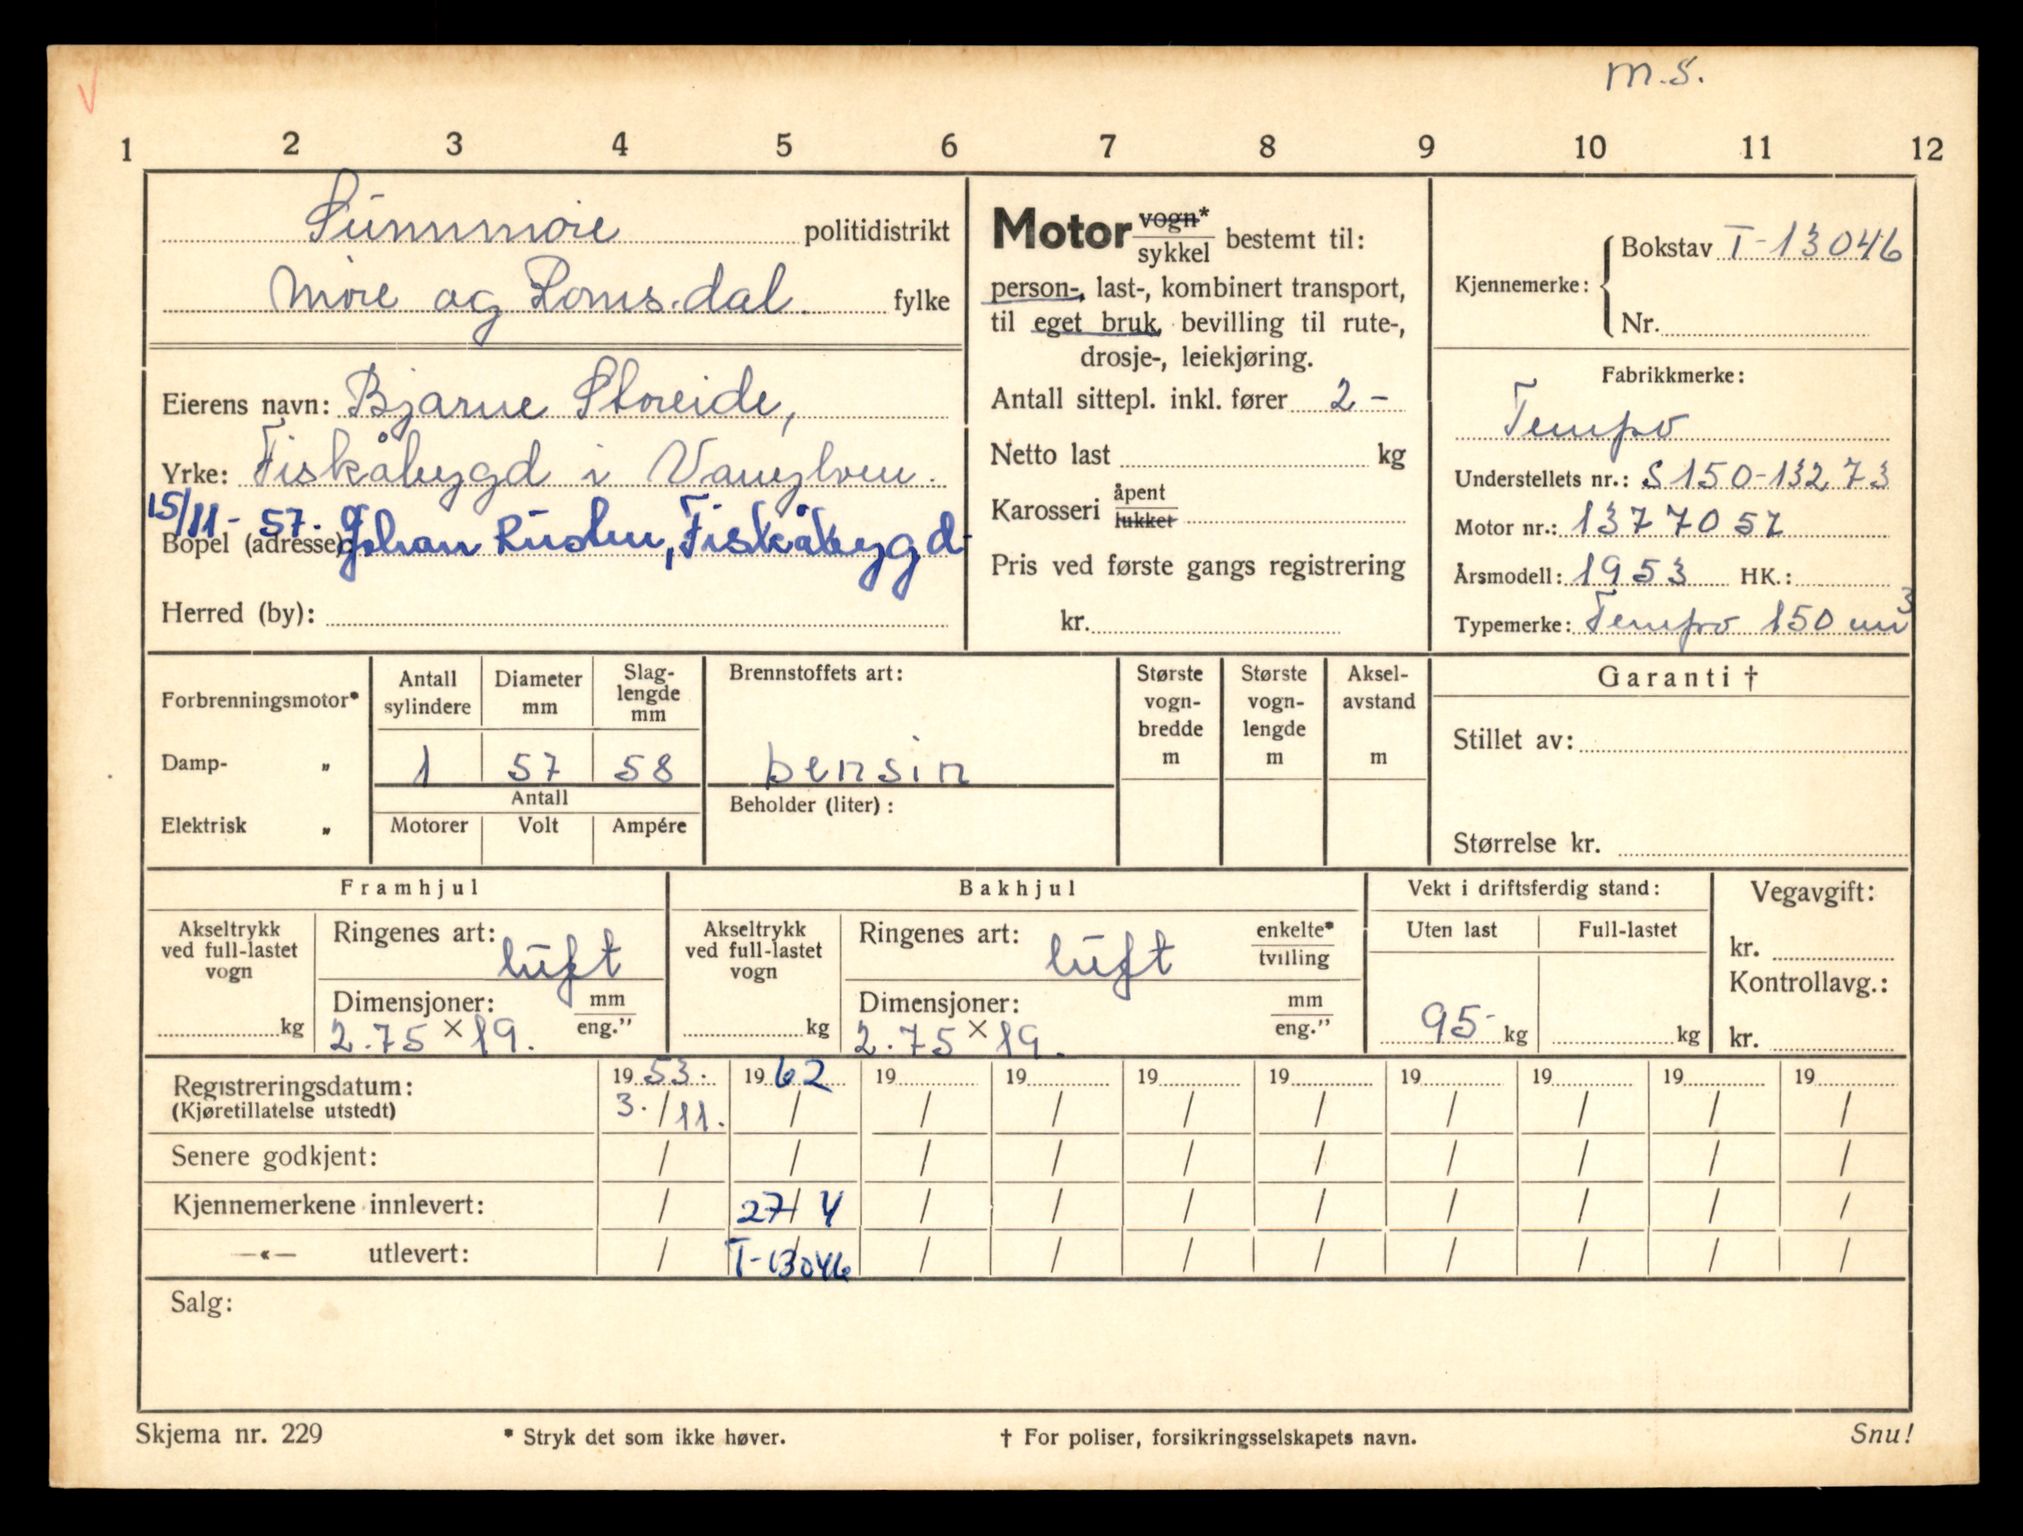 m.s.
1 2 3 4 5 6 7 8 9 10 11 12
Sunnmøre politidistrikt
Møre og Romsdal. fylke
Eierens navn: Bjarne Storeide,
Yrke: Fiskåbygd i Vanylven.
15/11-57.
Bopel (adresse): Johan Rusten, Fiskåbygd-
Herred (by):
Motor vogn* / sykkel bestemt til:
person-, last-, kombinert transport,
til eget bruk, bevilling til rute-,
drosje-, leiekjøring.
Antall sittepl. inkl. fører 2 -
Netto last kg
Karosseri åpent / lukket
Pris ved første gangs registrering
kr.
Kjennemerke: Bokstav T-13046
Nr.
Fabrikkmerke:
Tempo
Understellets nr.: S 150-13273
Motor nr.: 1377057
Årsmodell: 1953 HK.:
Typemerke: Tempo 150 cm3
Forbrenningsmotor*
Damp- „
Elektrisk „
Antall sylindere
Diameter mm
Slag-
lengde
mm
1 57 58
Antall
Motorer Volt Ampére
Brennstoffets art:
bensin
Beholder (liter) :
Største
vogn-
bredde
m
Største
vogn-
lengde
m
Aksel-
avstand
m
Garanti †
Stillet av:
Størrelse kr.
Framhjul
Akseltrykk
ved full-lastet
vogn
kg
Ringenes art: luft
Dimensjoner: mm / eng.”
2.75 × 19.
Bakhjul
Akseltrykk
ved full-lastet
vogn
kg
Ringenes art: luft enkelte* / tvilling
Dimensjoner: mm / eng.”
2.75 × 19.
Vekt i driftsferdig stand:
Uten last Full-lastet
95- kg kg
Vegavgift:
kr.
Kontrollavg.:
kr.
Registreringsdatum: 19 53. 19 62 19 19 19 19 19 19 19 19
(Kjøretillatelse utstedt) 3. / 11. / / / / / / / / /
Senere godkjent: / / / / / / / / / /
Kjennemerkene innlevert: / 27/4 / / / / / / / /
—«— utlevert: / T-13046 / / / / / / / /
Salg:
Skjema nr. 229 * Stryk det som ikke høver. † For poliser, forsikringsselskapets navn. Snu!